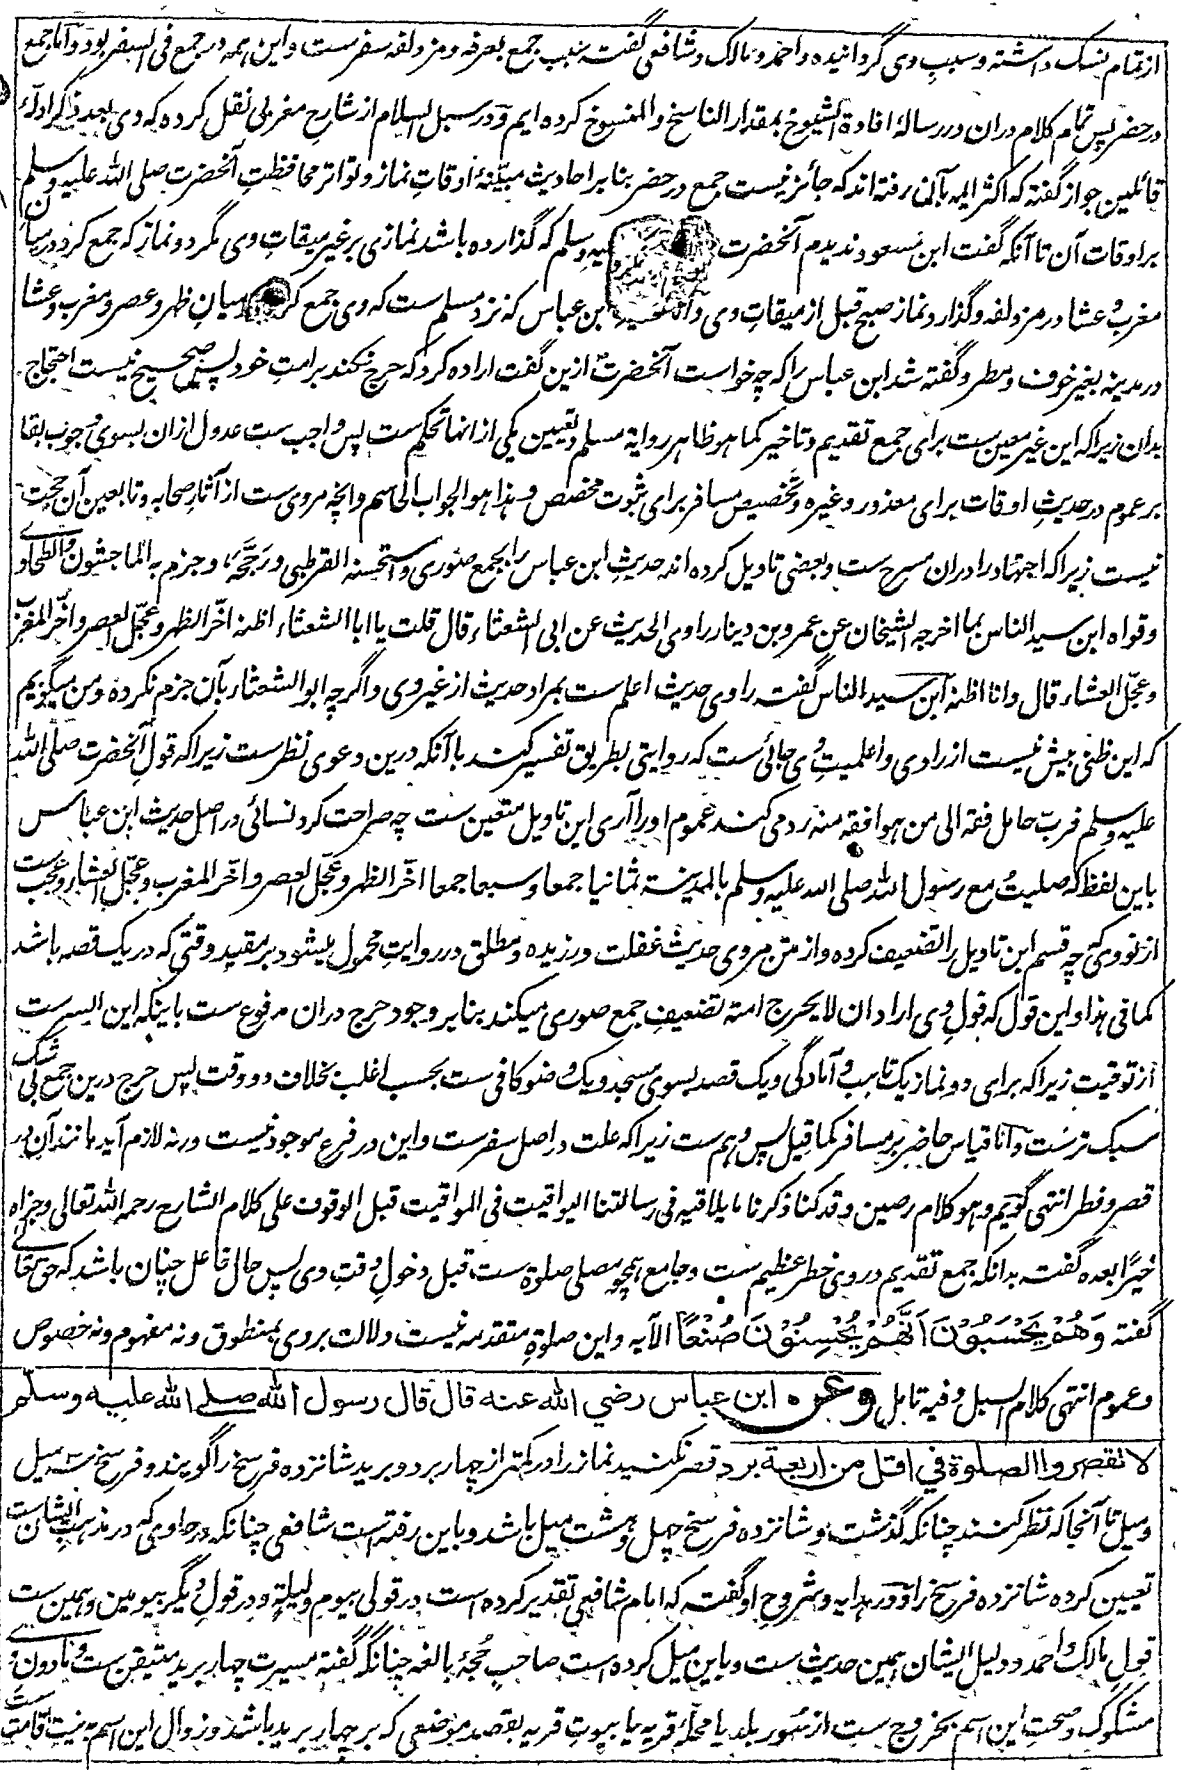 از تمام نسک داشته و سبب وی گردانیده و احمد و مالک و شافعی گفته سبب جمع بعرفه و مزدلفه سفرست و این همه در جمع فی السفر بود و اما جمع
در حضر پس تمام کلام دران در رسالهٔ افادة الشیوخ بمقدار الناسخ والمنسوخ کرده ایم و در سبل السلام از شارح مغربی نقل کرده که وی بعد ذکر ادلهٔ
قائلین جواز گفته که اکثر ائمه بآن رفته اند که جائز نیست جمع در حضر بنا بر احادیث مبیّنهٔ اوقات نماز و تواتر محافظتِ آنحضرت صلی الله علیه وسلم
بر اوقات آن تا آنکه گفت ابن مسعود ندیدم آنحضرت علیه وسلم که گذارده باشد نمازی بر غیر میقاتِ وی مگر دو نماز که جمع کرد در میان
مغرب و عشا در مزدلفه و گذارد نماز صبح قبل از میقاتِ وی و اما ابن عباس که نزد مسلم ست که وی جمع کرد میانِ ظهر و عصر و مغرب و عشا
در مدینه بغیر خوف و مطر و گفته شد ابن عباس را که چه خواست آنحضرت ازین گفت اراده کرد که حرج نکند بر امتِ خود پس صحیح نیست احتجاج
بدان زیرا که این غیر معین ست برای جمع تقدیم و تاخیر کما هو ظاهر روایة مسلم و تعیین یکی از انها تحکم ست پس واجب ست عدول ازان بسوی وجوب بقا
بر عموم در حدیثِ اوقات برای معذور و غیره و تخصیص مسافر برای ثبوت مخصص و هذا هو الجواب الحاسم و آنچه مروی ست از آثار صحابه و تابعین آن حجت
نیست زیرا که اجتهاد را دران مسرح ست و بعضی تاویل کرده اند حدیثِ ابن عباس را بجمع صوری و استحسنه القرطبی و رَجَّحَهُ، و جزم به الماجشون والطحاوی
و قواه ابن سید الناس بما اخرجه الشیخان عن عمرو بن دینار راوی الحدیث عن ابی الشعثاء قال قلت یا ابا الشعثاء اظنه اخّر الظهر و عجّل العصر و اخّر المغرب
و عجّل العشاء قال و انا اظنه ابن سید الناس گفته راوی حدیث اعلم ست بمراد حدیث از غیر وی و اگرچه ابو الشعثاء بآن جزم نکرده و من میگویم
که این ظنی بیش نیست از راوی و اعلمیتِ وی جائی ست که روایتی بطریق تفسیر کند با آنکه درین دعوی نظرست زیرا که قولِ آنحضرت صلی الله
علیه وسلم فربّ حامل فقه الی من هو افقه منه رد می کند عموم او را آری این تاویل متعین ست چه صراحت کرد نسائی در اصل حدیثِ ابن عباس
باین لفظ که صلیتُ مع رسول الله صلی الله علیه وسلم بالمدینة ثمانیا جمعا و سبعا جمعا اخّر الظهر و عجّل العصر و اخّر المغرب و عجّل العشاء و عجب ست
از نووی که چه قسم این تاویل را تضعیف کرده و از متن مروی حدیث غفلت ورزیده و مطلق در روایت محمول میشود بر مقید وقتی که در یک قصه باشد
کما فی هذا و این قول که قولِ وی اراد ان لا یحرج امته تضعیفِ جمع صوری میکند بنابر وجود حرج دران مرفوع ست باینکه این ایسرست
از توقیت زیرا که برای دو نماز یک تاهب و آمادگی و یک قصد بسوی مسجد و یک وضو کافی ست بحسب اغلب بخلاف دو وقت پس حرج درین جمع بی شک
سبک ترست و اما قیاس حاضر بر مسافر کما قیل پس وهم ست زیرا که علت در اصل سفرست و این در فرع موجود نیست ورنه لازم آید مانند آن در
قصر و فطر انتهی گویم و هو کلام رصین و قد کنا ذکرنا ما یلاقیه فی رسالتنا الیواقیت فی المواقیت قبل الوقوف علی کلام الشارح رحمه الله تعالی و جزاه
خیرا بعده گفته بدانکه جمع تقدیم در وی خطر عظیم ست و جامع همچو مصلی صلوة ست قبل دخولِ وقتِ وی پس حال فاعل چنان باشد که حق تعالی
گفته وَهُمْ يَحْسَبُوْنَ اَنَّهُمْ يُحْسِنُوْنَ صُنْعًا الآیه و این صلوةِ متقدمه نیست دلالت بروی بمنطوق و نه مفهوم و نه خصوص
و عموم انتهی کلام السبل و فیه تامل وعن ابن عباس رضي الله عنه قال قال رسول الله صلے الله عليه وسلم
لا تقصروا الصلوة في اقل من اربعة برد قصر نکنید نماز را در کمتر از چهار برد و برید شانزده فرسخ را گویند و فرسخ سه میل
و میل تا آنجا که نظر کنند چنانکه گذشت و شانزده فرسخ چهل و هشت میل باشد و باین رفته است شافعی چنانکه در حاوی که در مذهب ایشان ست
تعیین کرده شانزده فرسخ را و در هدایه و شروحِ او گفته که امام شافعی تقدیر کرده است در قولی بیوم و لیلةٍ و در قولِ دیگر بیومین و همین ست
قولِ مالک و احمد و دلیل ایشان همین حدیث ست و باین میل کرده است صاحبِ حُجةُ بالغه چنانکه گفته مسیرتِ چهار برید متیقن ست و ما دونِ وی
مشکوک و صحتِ این اسم بخروج ست از سور بلد یا محلهٔ قریه یا بیوتِ قریه بقصد موضعی که بر چهار برید باشد و زوال این اسم به نیتِ اقامت ست